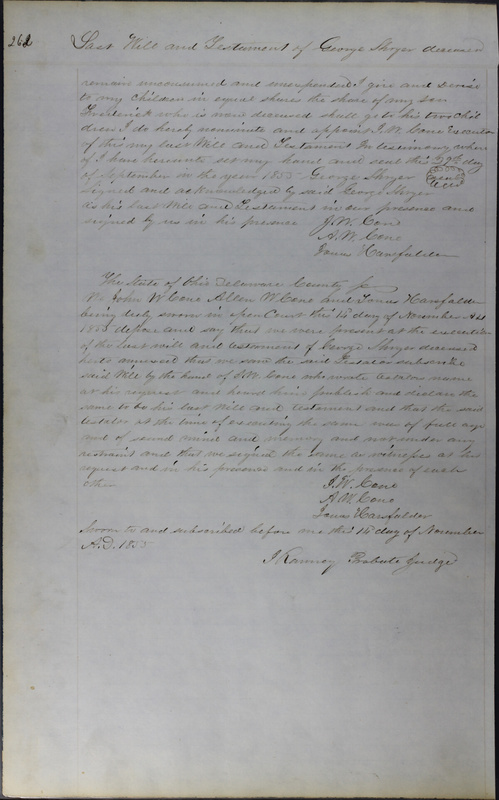 262
Last Will and Testament of George Shoyer deceased
remain unconsumed and unexpended I give and devise
to my children in equal shares the share of my son
Frederick who is now deceased shall go to his two chil
dren I do hereby nominate and appoint J. W. Cone Executor
of this my last Will and Testament In testimony where
of I have hereunto set my hand and seal this 29th day
of September in the year 1855 George Shoyer
Signed and acknowledged by said George Shoyer
as his last Will and Testament in our presence and
signed by us in his presence J. W. Cone
A. W. Cone
James Hawfalder
The State of Ohio Delaware County
We John W Cone Allen W Cone and James Hawfalder
being duly sworn in open Court this 16 day of November AD
1855 depose and say that we were present at the execution
of the last will and testament of George Shoyer deceased
hereto annexed that we saw the said Testator subscribe
said Will by the hand of J. W. Cone who wrote testators name
at his request and heard him publish and declare the
same to be his last Will and Testament and that the said
testator at the time of executing the same was of full age
and of sound mind and memory and not under any
restraint and that we signed the same as witnesses at his
request and in his presence and in the presence of each
other
J. W. Cone
A. W. Cone
James Hawfalder
Sworn to and subscribed before me this 16 day of November
A.D. 1855
J Ranney Probate Judge